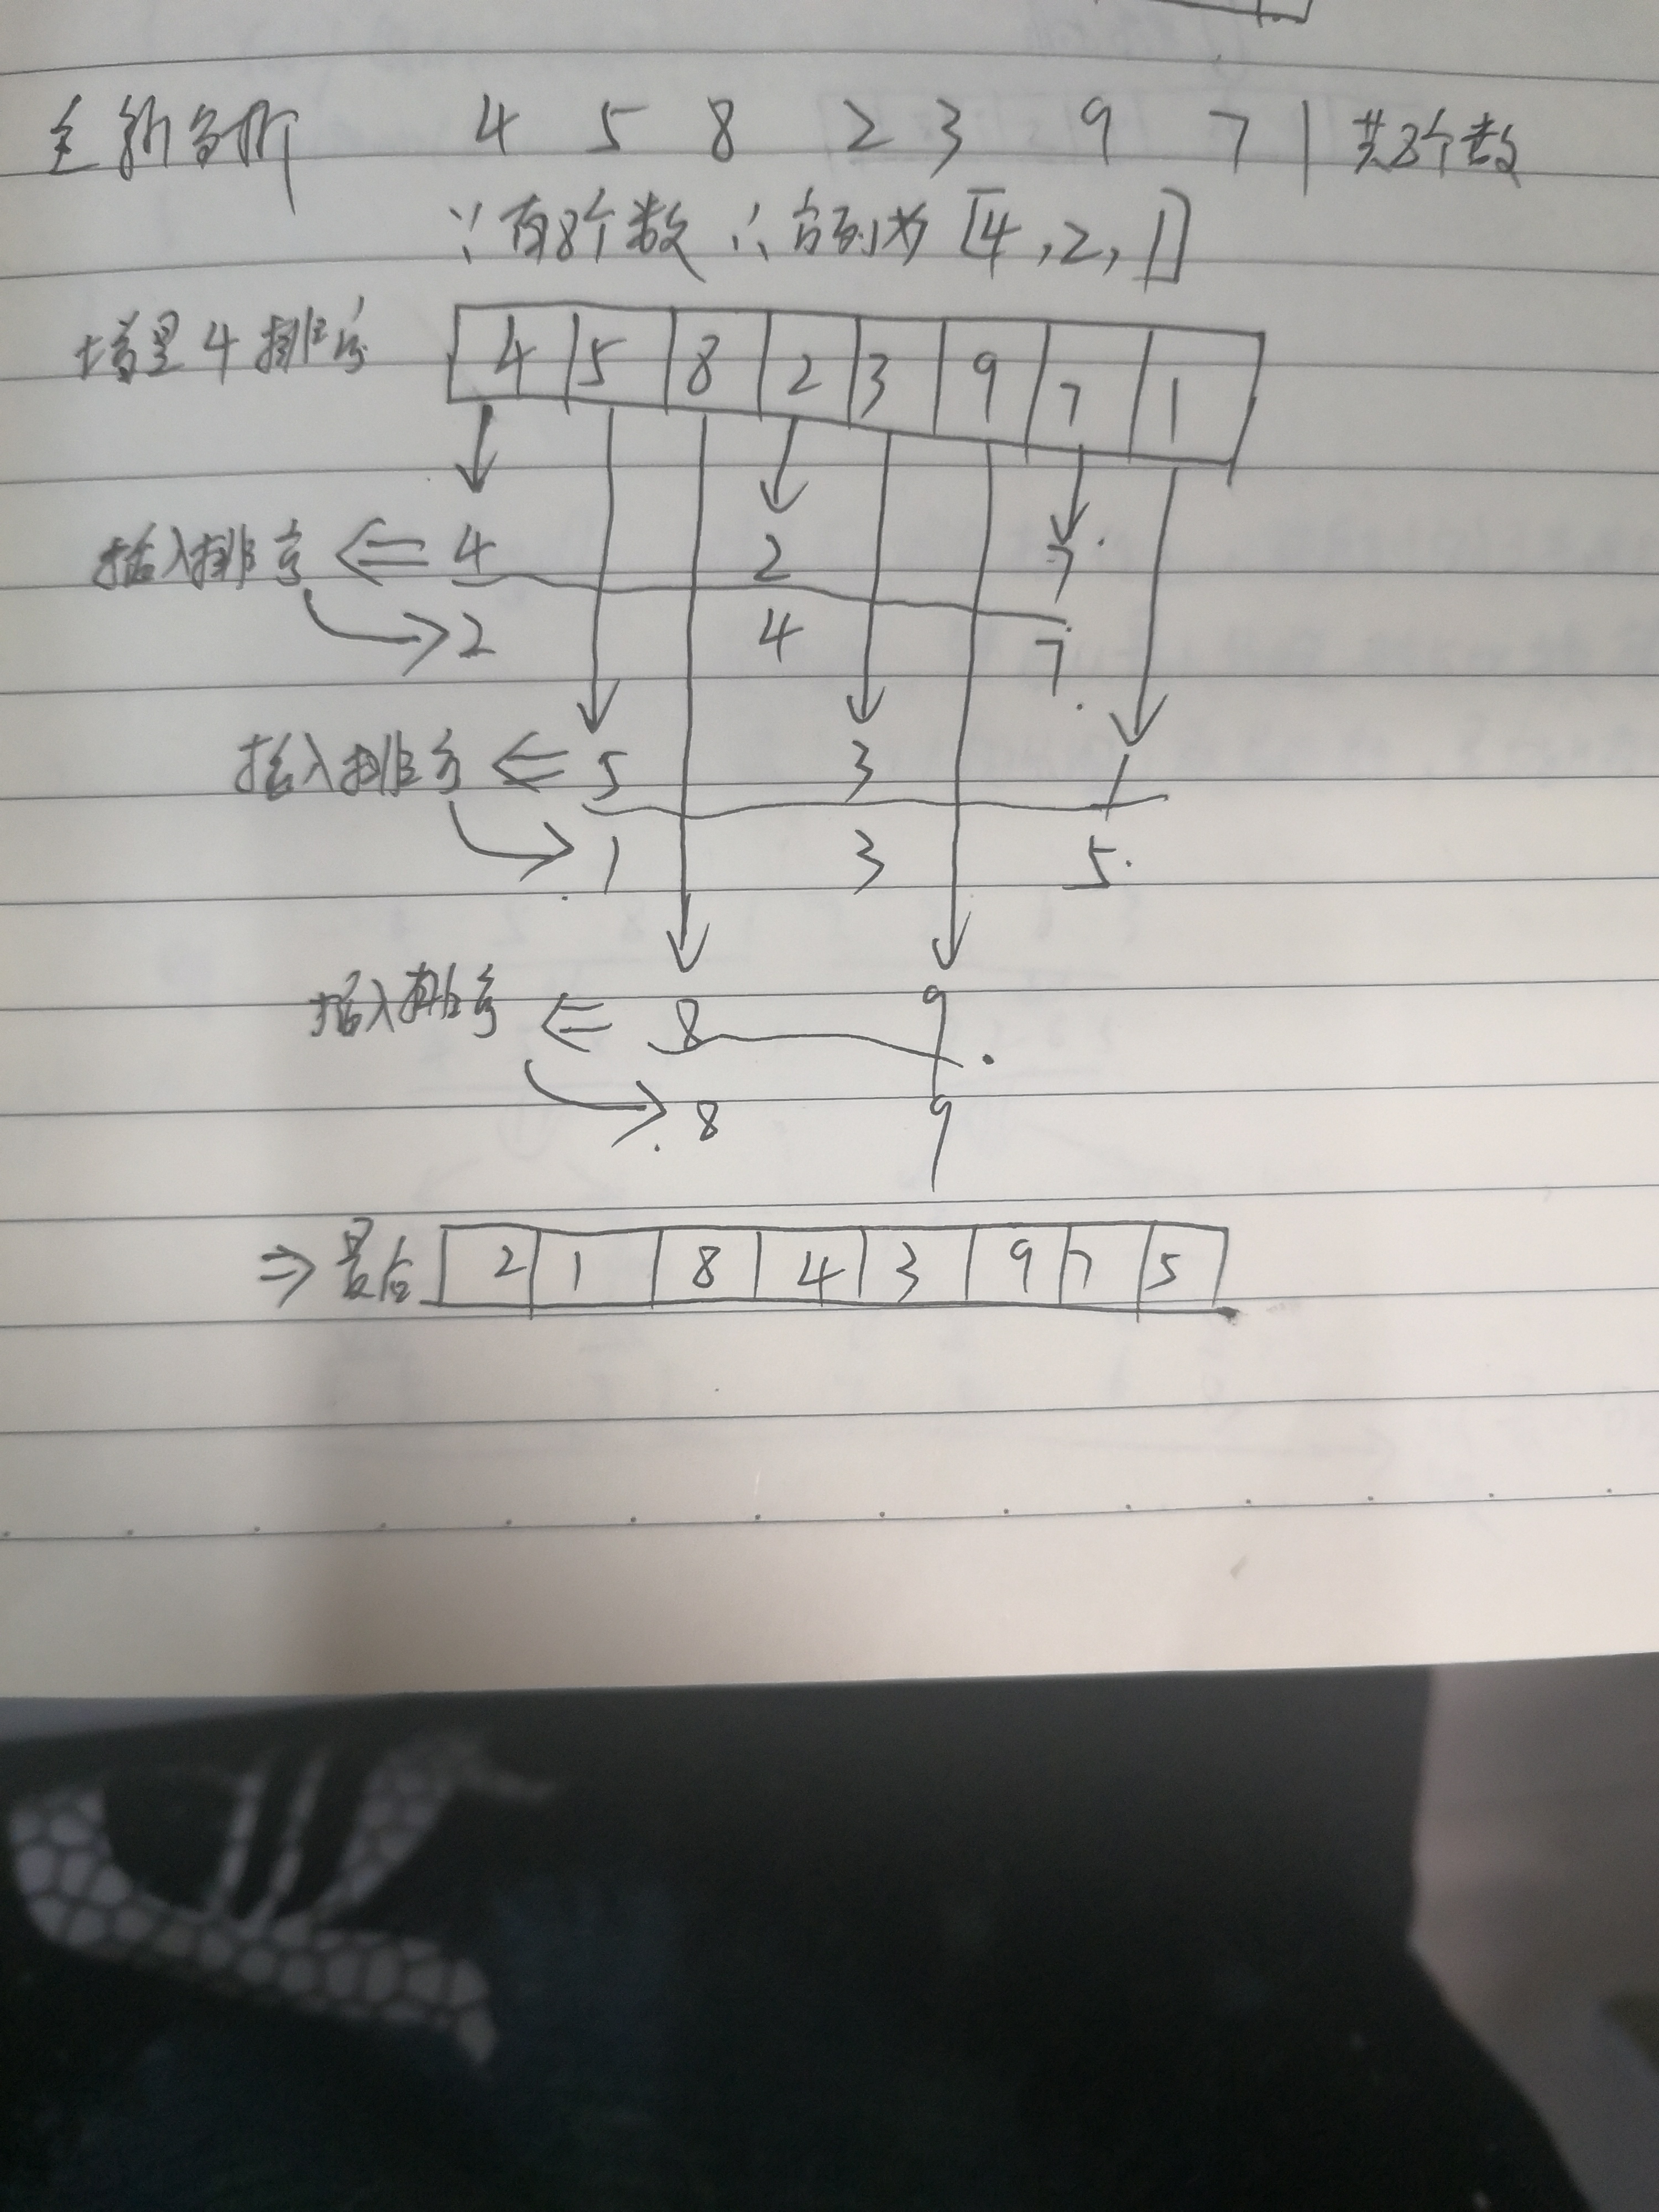 4 5 8 2 3 9 7 1 共8个数
∵有8个数 ∴ 为 [4,2,1]
增量4排序 4 5 8 2 3 9 7 1
插入排序 ⇐ 4 2 7
2 4 7
插入排序 ⇐ 5 3 1
1 3 5
插入排序 ⇐ 8 9
8 9
⇒最后 2 1 8 4 3 9 7 5